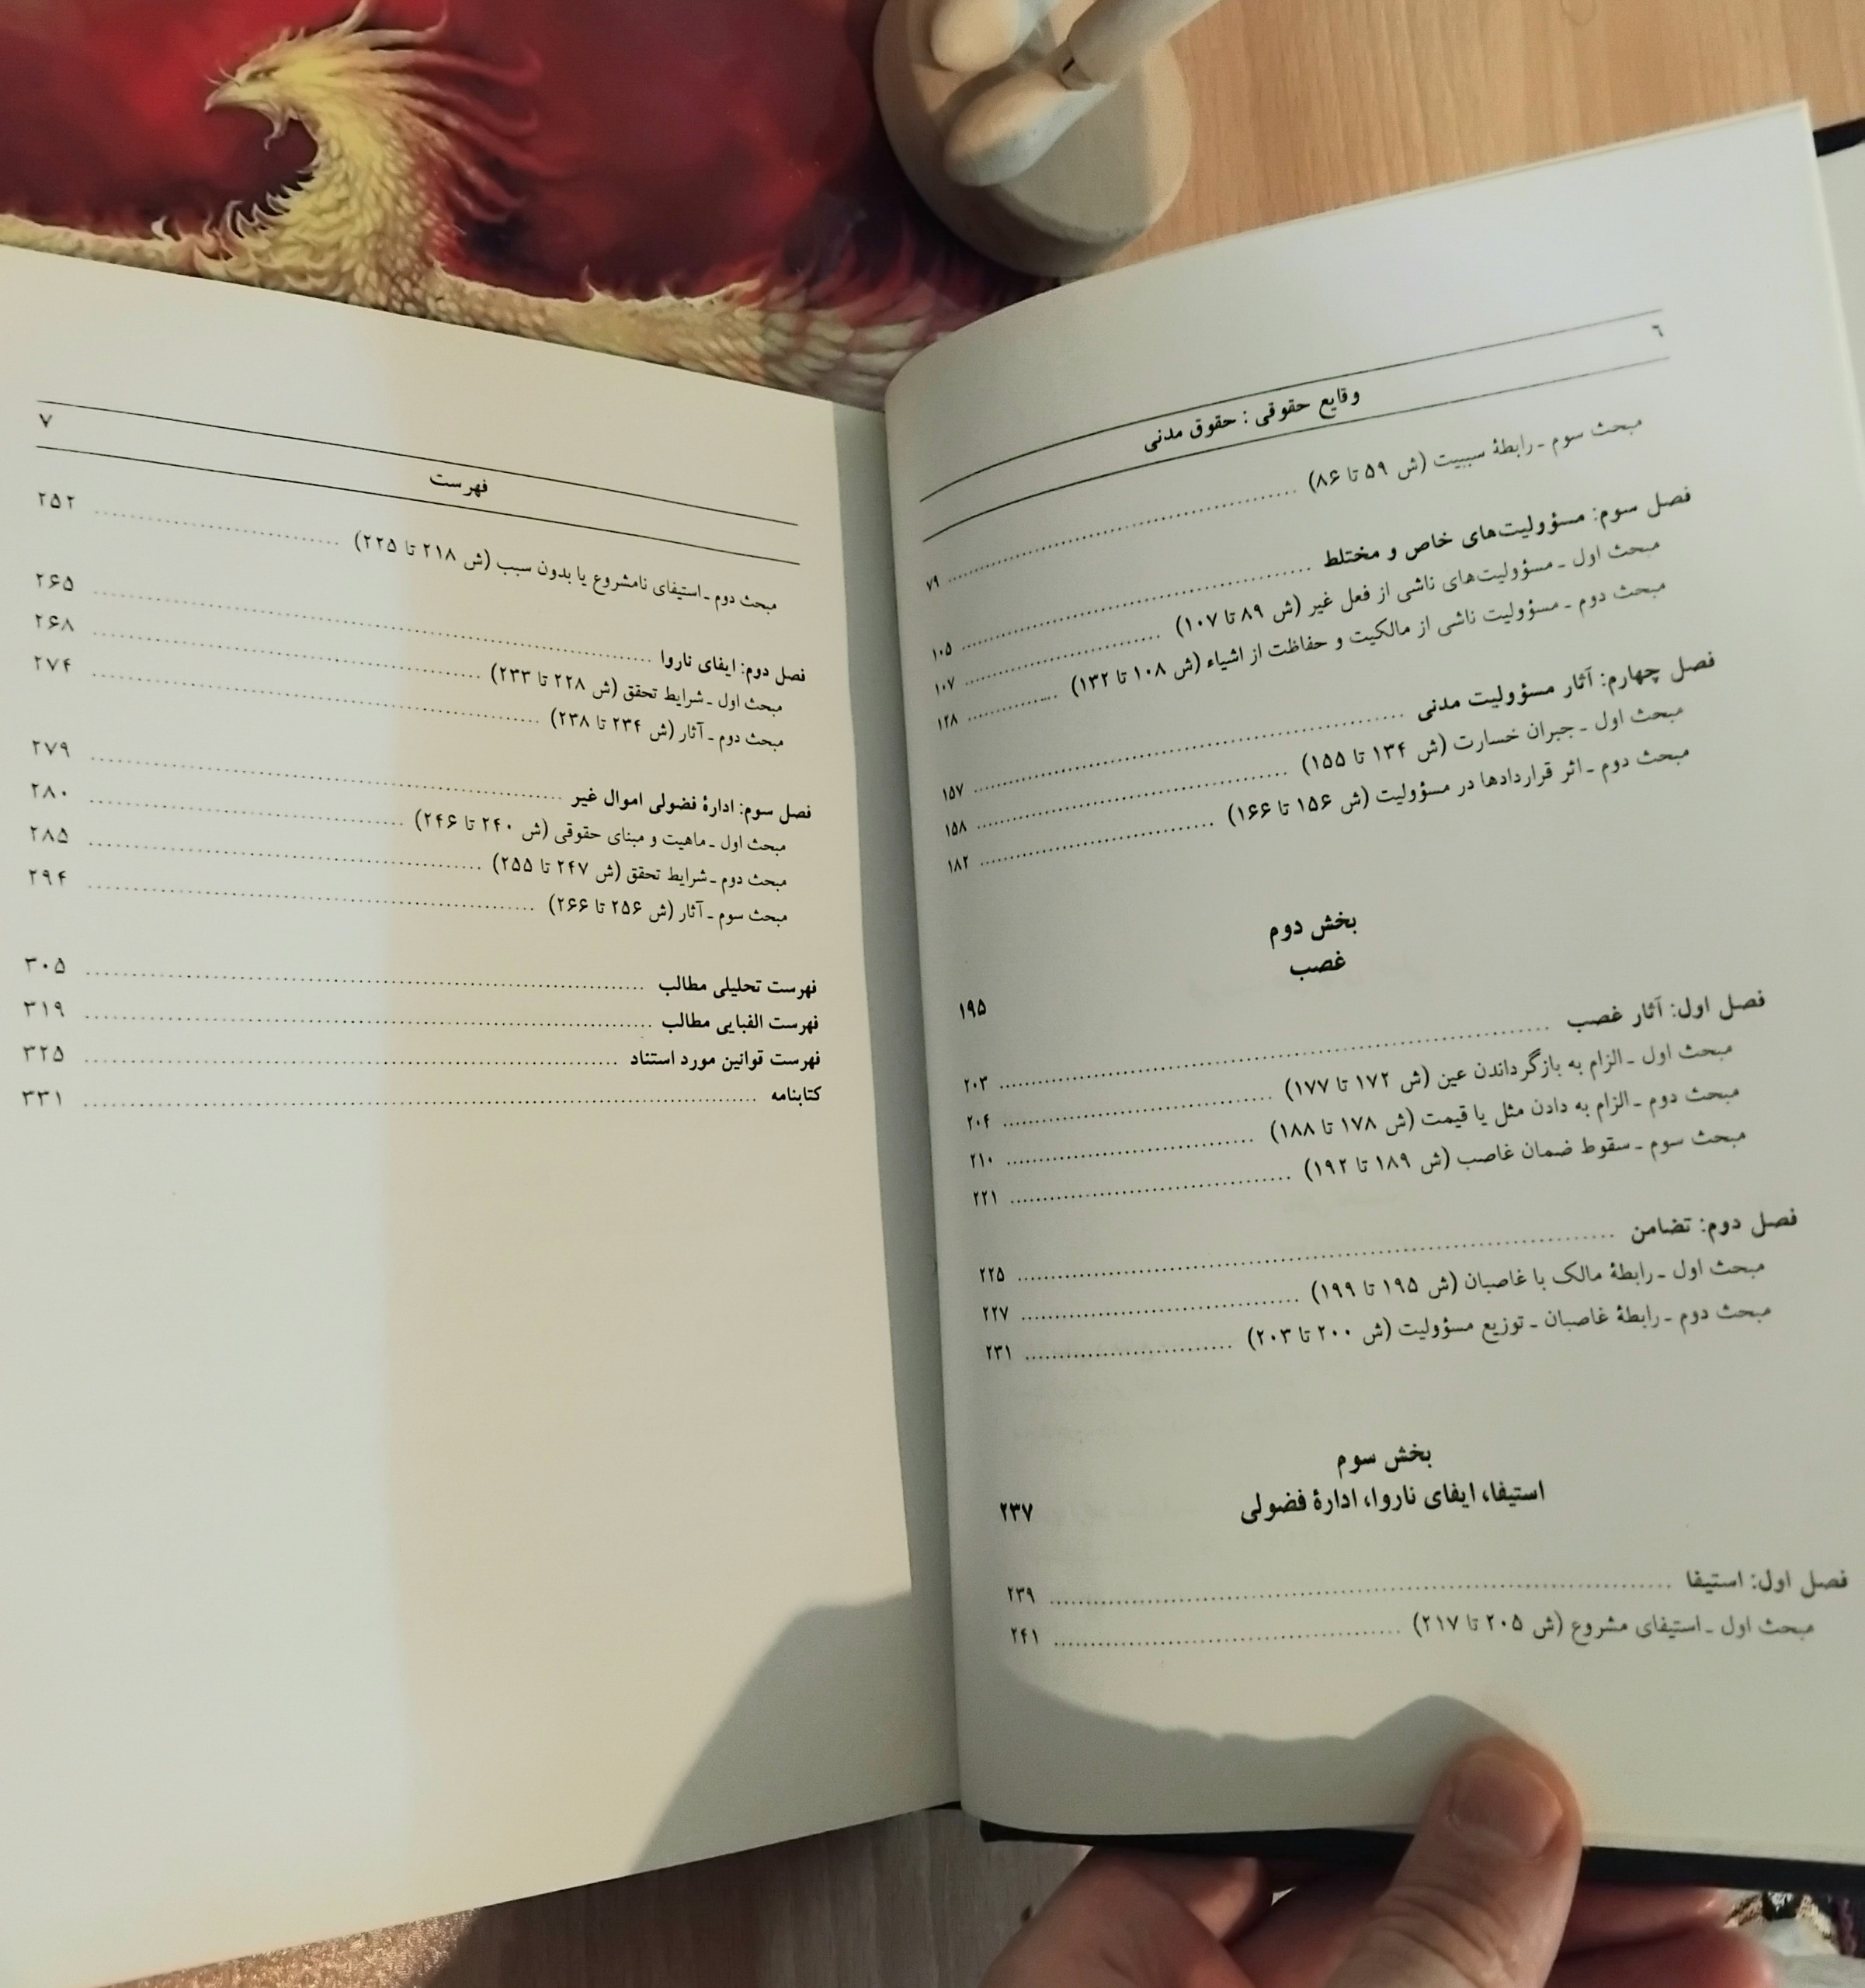 ۶
وقایع حقوقی : حقوق مدنی
مبحث سوم ـ رابطهٔ سببیت (ش ۵۹ تا ۸۶) ........ ۷۹
فصل سوم: مسؤولیت‌های خاص و مختلط ........ ۱۰۵
مبحث اول ـ مسؤولیت‌های ناشی از فعل غیر (ش ۸۹ تا ۱۰۷) ........ ۱۰۷
مبحث دوم ـ مسؤولیت ناشی از مالکیت و حفاظت از اشیاء (ش ۱۰۸ تا ۱۳۲) ........ ۱۲۸
فصل چهارم: آثار مسؤولیت مدنی ........ ۱۵۷
مبحث اول ـ جبران خسارت (ش ۱۳۴ تا ۱۵۵) ........ ۱۵۸
مبحث دوم ـ اثر قراردادها در مسؤولیت (ش ۱۵۶ تا ۱۶۶) ........ ۱۸۲
بخش دوم
غصب
۱۹۵
فصل اول: آثار غصب ........ ۲۰۳
مبحث اول ـ الزام به بازگرداندن عین (ش ۱۷۲ تا ۱۷۷) ........ ۲۰۴
مبحث دوم ـ الزام به دادن مثل یا قیمت (ش ۱۷۸ تا ۱۸۸) ........ ۲۱۰
مبحث سوم ـ سقوط ضمان غاصب (ش ۱۸۹ تا ۱۹۲) ........ ۲۲۱
فصل دوم: تضامن ........ ۲۲۵
مبحث اول ـ رابطهٔ مالک با غاصبان (ش ۱۹۵ تا ۱۹۹) ........ ۲۲۷
مبحث دوم ـ رابطهٔ غاصبان ـ توزیع مسؤولیت (ش ۲۰۰ تا ۲۰۳) ........ ۲۳۱
بخش سوم
استیفا، ایفای ناروا، ادارهٔ فضولی ۲۳۷
فصل اول: استیفا ........ ۲۳۹
مبحث اول ـ استیفای مشروع (ش ۲۰۵ تا ۲۱۷) ........ ۲۴۱
۷
فهرست
مبحث دوم ـ استیفای نامشروع یا بدون سبب (ش ۲۱۸ تا ۲۲۵) ........ ۲۵۲
فصل دوم: ایفای ناروا ........ ۲۶۵
مبحث اول ـ شرایط تحقق (ش ۲۲۸ تا ۲۳۳) ........ ۲۶۸
مبحث دوم ـ آثار (ش ۲۳۴ تا ۲۳۸) ........ ۲۷۴
فصل سوم: ادارهٔ فضولی اموال غیر ........ ۲۷۹
مبحث اول ـ ماهیت و مبنای حقوقی (ش ۲۴۰ تا ۲۴۶) ........ ۲۸۰
مبحث دوم ـ شرایط تحقق (ش ۲۴۷ تا ۲۵۵) ........ ۲۸۵
مبحث سوم ـ آثار (ش ۲۵۶ تا ۲۶۶) ........ ۲۹۴
فهرست تحلیلی مطالب ........ ۳۰۵
فهرست الفبایی مطالب ........ ۳۱۹
فهرست قوانین مورد استناد ........ ۳۲۵
کتابنامه ........ ۳۳۱